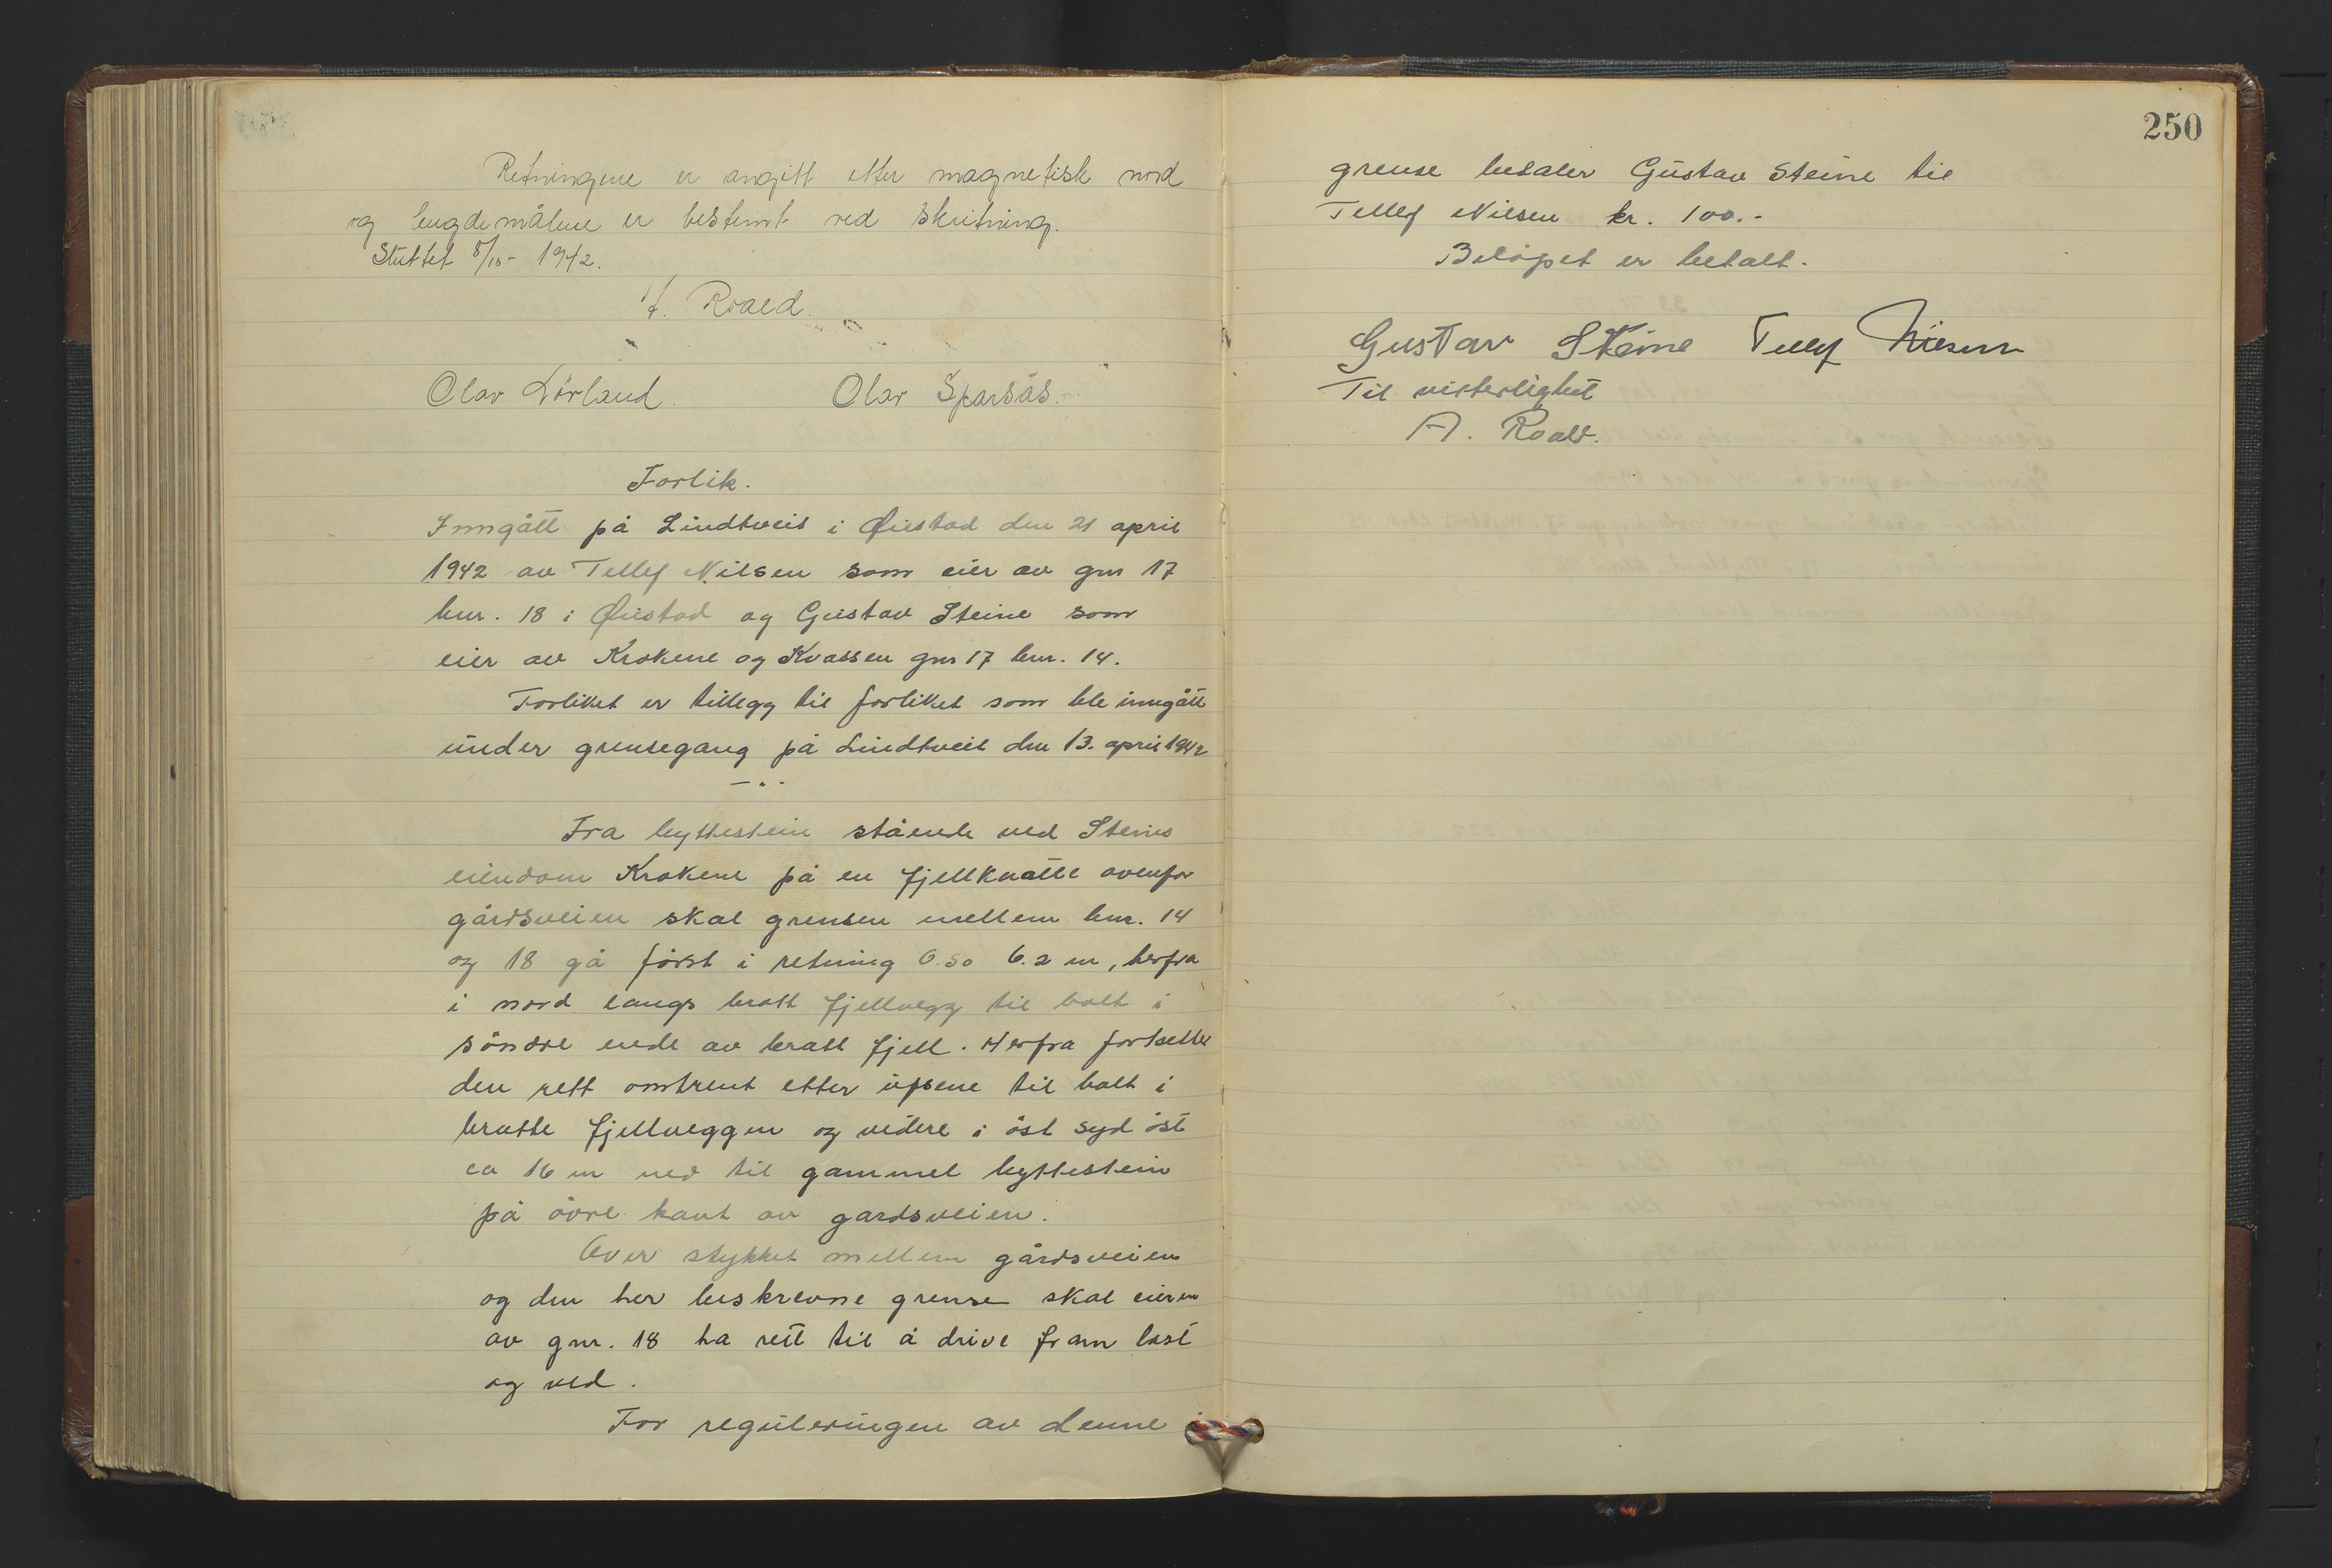 Retningene er angitt etter magnetisk nord
og lengdemålene er bestemt ved skritning.
Sluttet 8/10- 1942.
A. Roald.
Olav Dörland Olav Sparsås.
Forlik.
Inngått på Lindtveit i Øiestad den 21 april
1942 av Tellef Nilsen som eier av gnr 17
bnr. 18 i Øiestad og Gustav Steine som
eier av Krokene og Kvassen gnr 17 bnr. 14.
Forliket er tillegg til forliket som ble inngått
under grensegang på Lindtveit den 13. april 1942
Fra byttestein stående ved Steines
eiendom Krokene på en fjellknatte ovenfor
gårdsveien skal grensen mellem bnr. 14
og 18 gå først i retning O.so 6.2 m, herfra
i nord langs bratt fjellvegg til bolt i
söndre ende av bratt fjell. Herfra fortsetter
den rett omtrent etter upsene til bolt i
bratte fjellveggen og videre i öst syd öst
ca 16 m ned til gammel byttestein
på övre kant av gardsveien.
Over stykket mellem gårdsveien
og den her beskrevne grense skal eieren
av gnr. 18 ha rett til å drive fram last
og ved.
For reguleringen av denne
250
grense betaler Gustav Steine til
Tellef Nilsen kr. 100.-
Belöpet er betalt.
Gustav Steine Tellef Nilsen
Til vitterlighet
A. Roald.